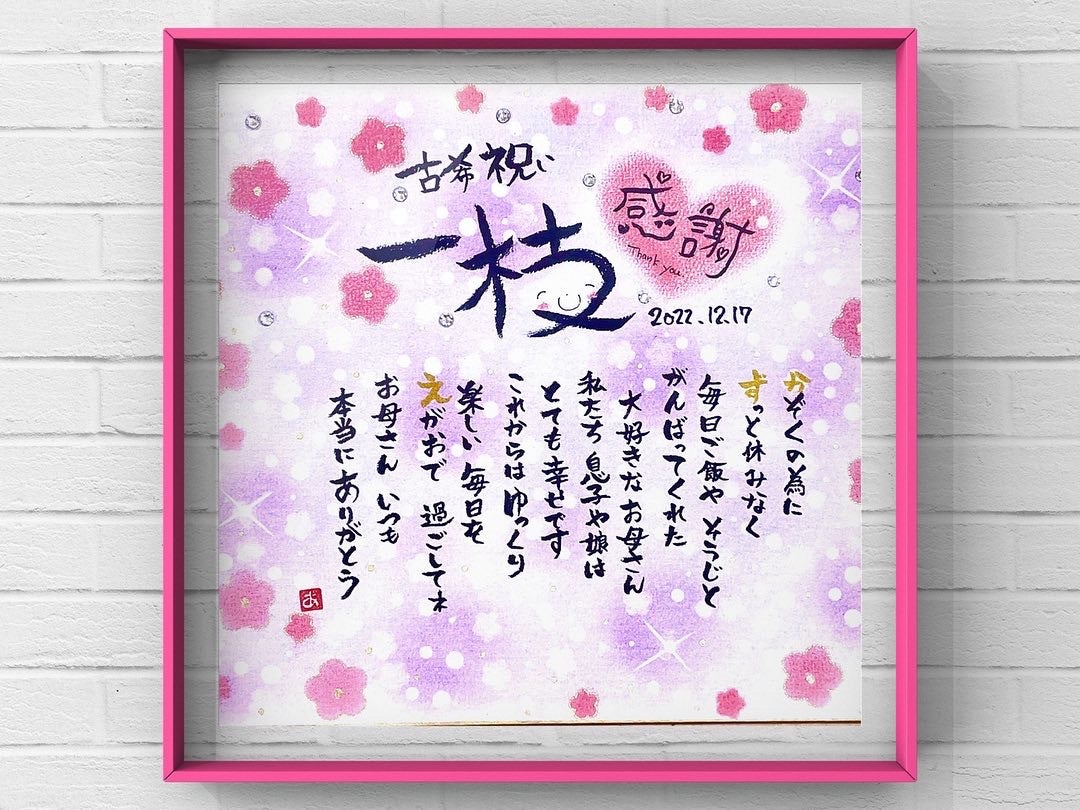 古希祝い
一枝
感謝
Thank you
2022.12.17
かぞくの為に
ずっと休みなく
毎日ご飯や そうじと
がんばってくれた
大好きなお母さん
私たち 息子や娘は
とても幸せです
これからは ゆっくり
楽しい 毎日を
えがおで 過ごしてネ
お母さん いつも
本当に ありがとう